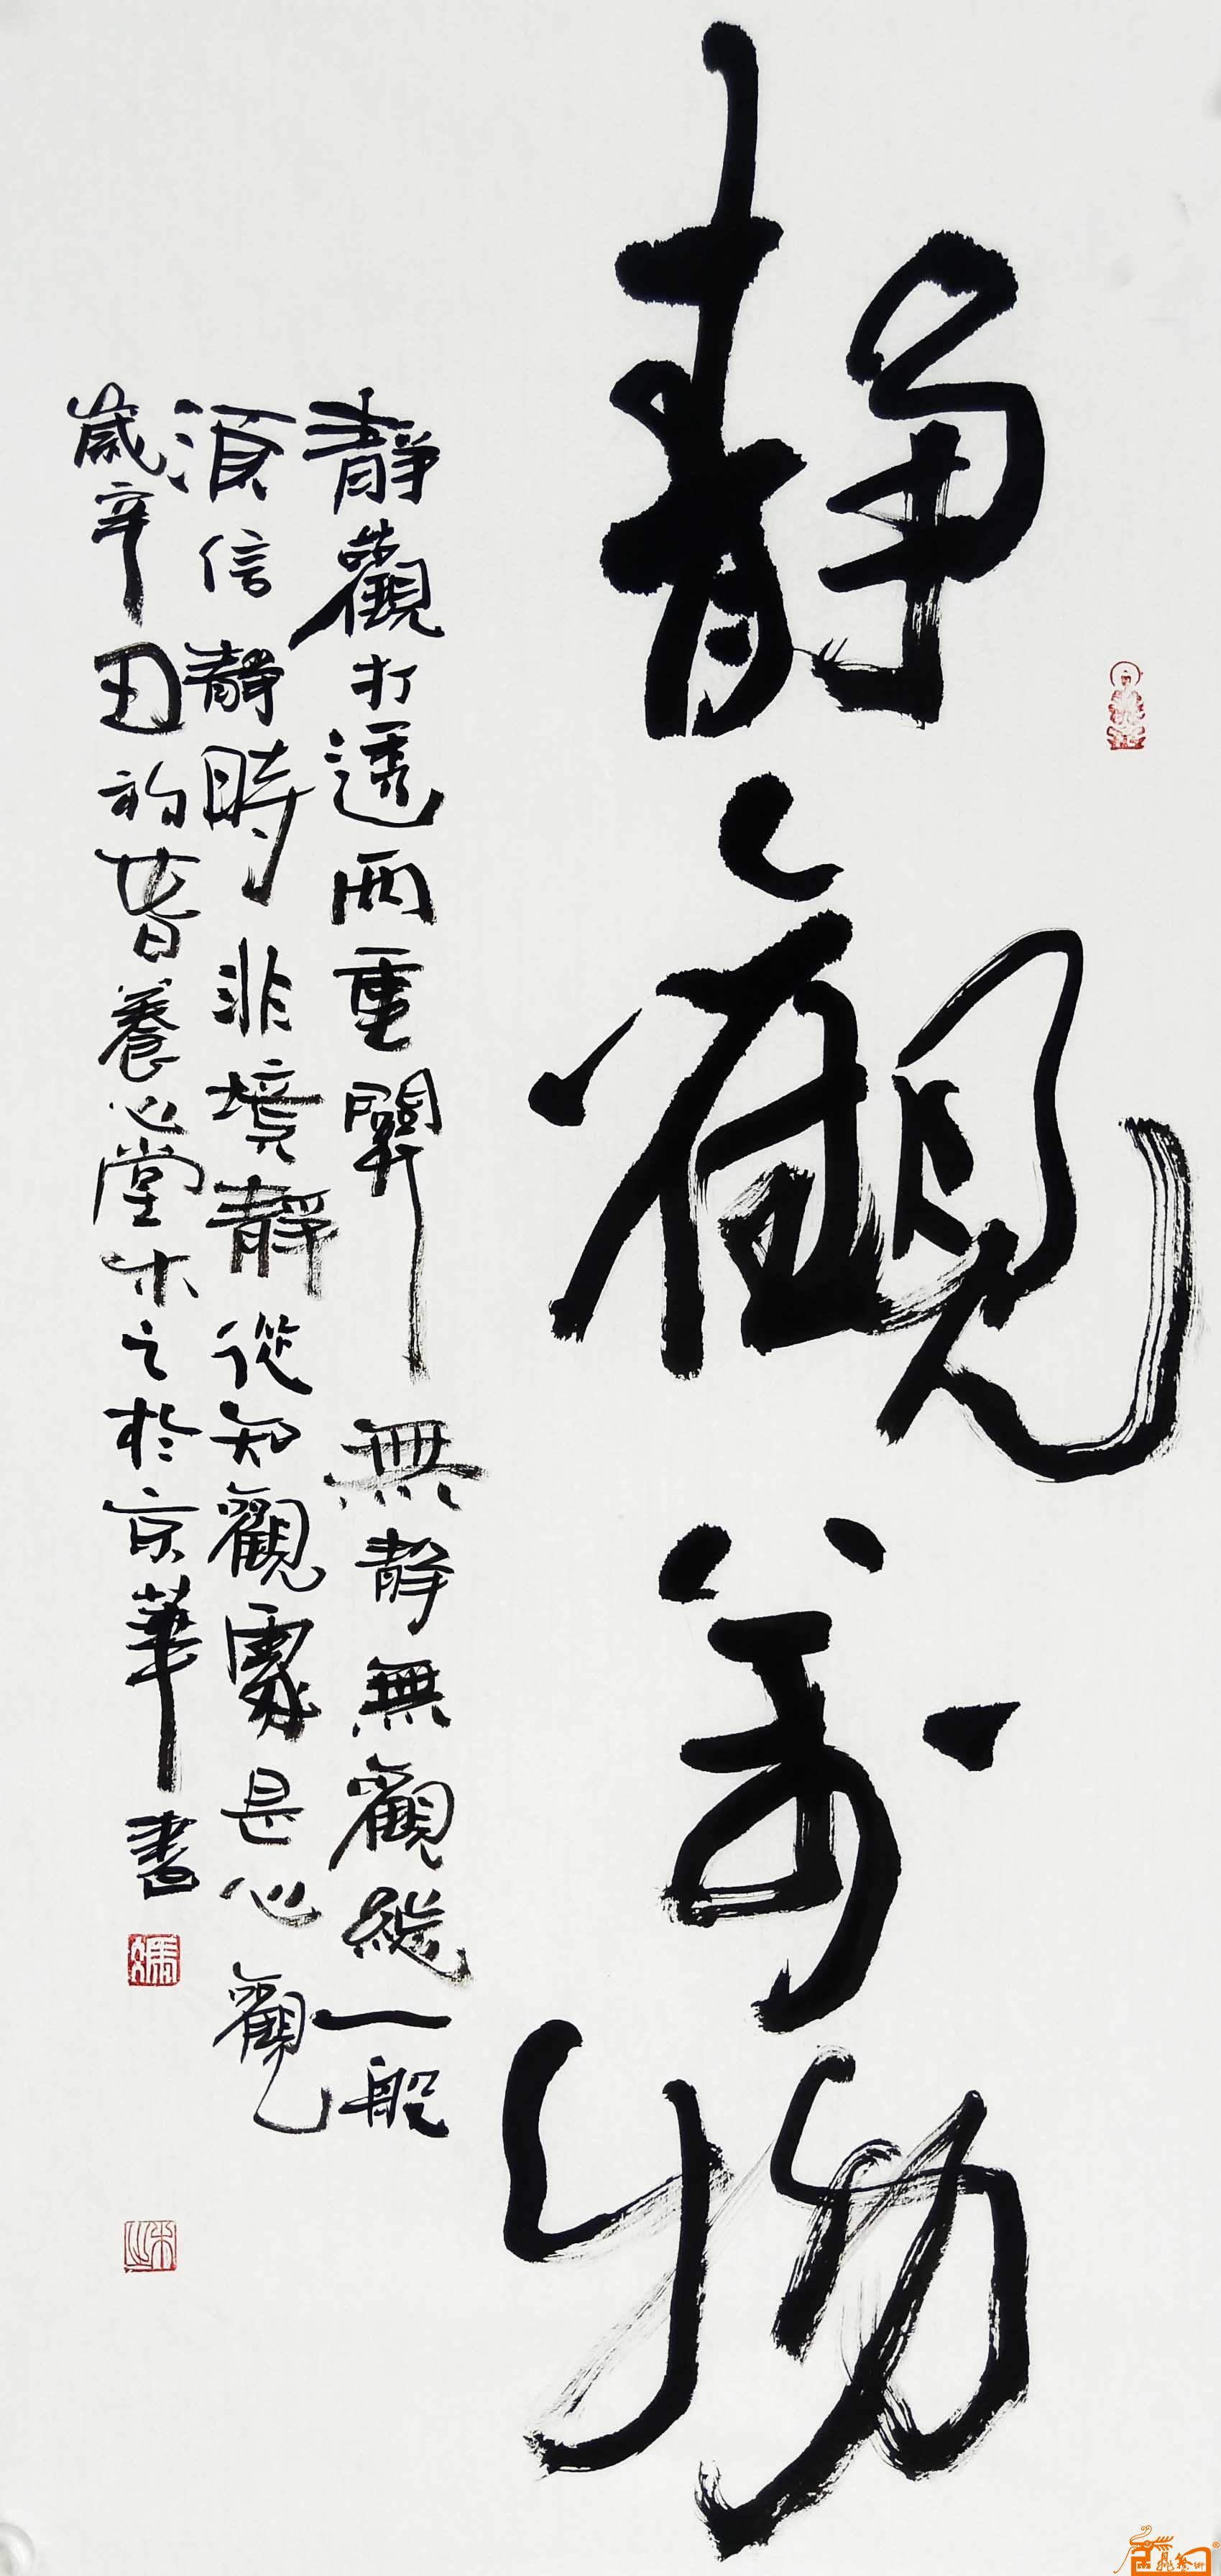 靜觀萬物
靜觀打透兩重關無靜無觀總一般
須信靜時非境靜從知觀處是心觀
歲辛丑初春養心堂木之於京華書